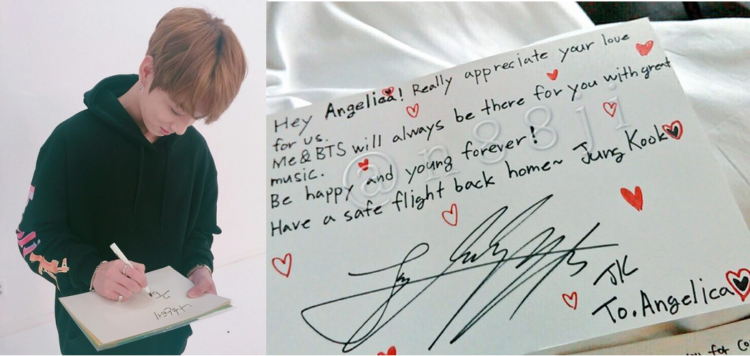 Hey Angelica! Really appreciate your love
for us.
Me&BTS will always be there for you with great
music.
Be happy and young forever!
Have a safe flight back home~ Jung Kook
JK
To. Angelica
@n88ji